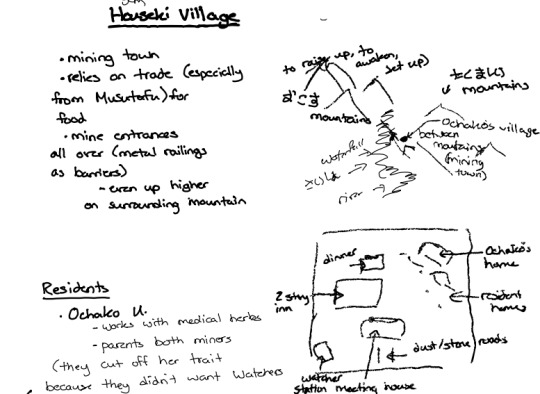 Houseki Village
• mining town
• relies on trade (especially
from Musutafu) for
food
• mine entrances
all over (metal railings
as barriers)
- even up higher
on surrounding mountain
to raise up, to
awaken,
set up)
mountains
たくましい
mountains
Ochako's village
between
mountains
(mining
town)
waterfall
river
Residents
• Ochako U.
- works with medical herbs
- parents both miners
(they cut off her trait
because they didn't want Watchers
dinner
2 story
inn
Ochako's
home
resident
homes
dust/stone roads
watcher
station
meeting house